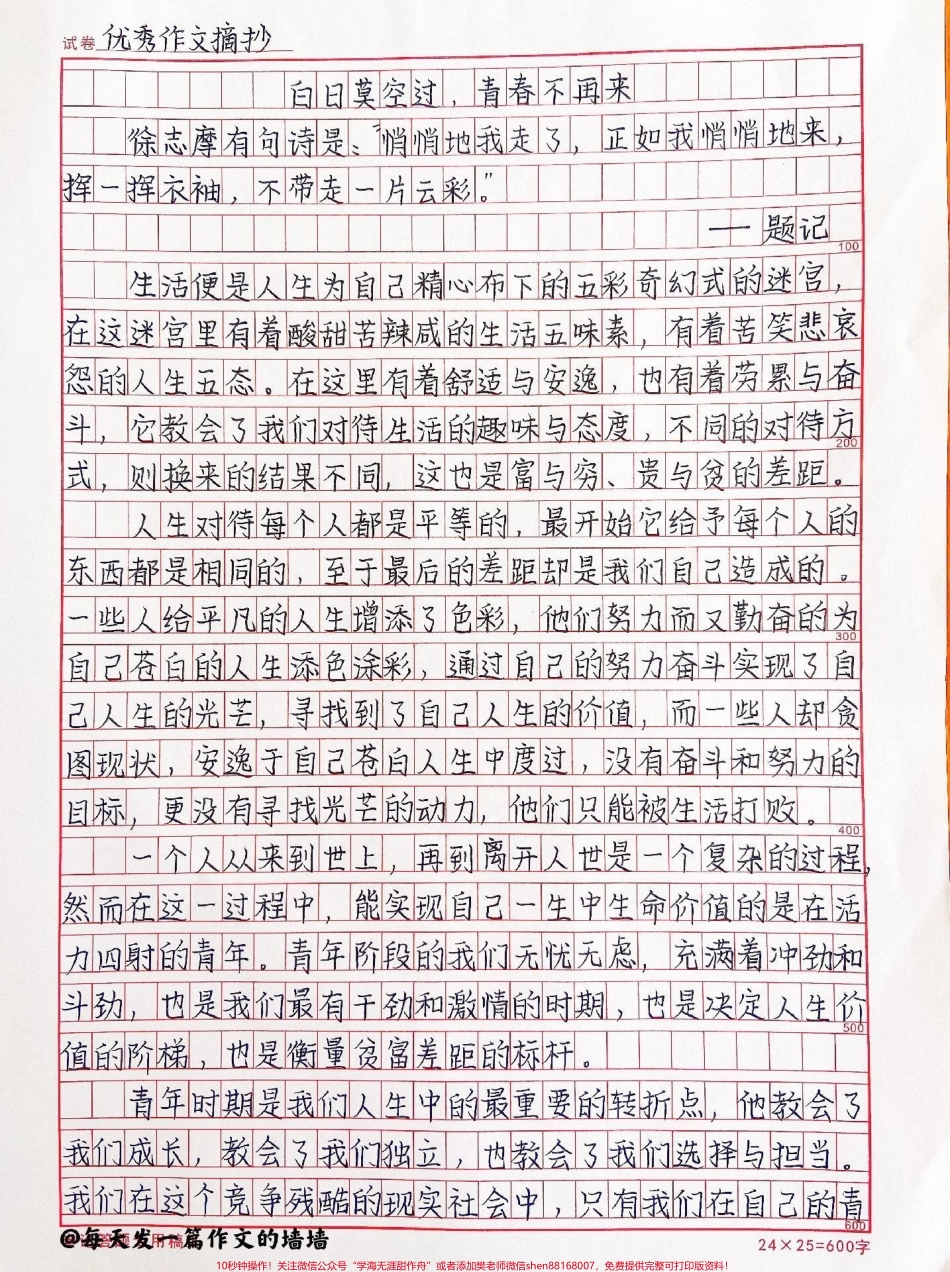 试卷 优秀作文摘抄
白日莫空过，青春不再来
徐志摩有句诗是："悄悄地我走了，正如我悄悄地来，
挥一挥衣袖，不带走一片云彩。"
——题记
100
生活便是人生为自己精心布下的五彩奇幻式的迷宫，
在这迷宫里有着酸甜苦辣咸的生活五味素，有着苦笑悲哀
怨的人生五态。在这里有着舒适与安逸，也有着劳累与奋
斗，它教会了我们对待生活的趣味与态度，不同的对待方
200
式，则换来的结果不同，这也是富与穷、贵与贫的差距。
人生对待每个人都是平等的，最开始它给予每个人的
东西都是相同的，至于最后的差距却是我们自己造成的。
一些人给平凡的人生增添了色彩，他们努力而又勤奋的为
300
自己苍白的人生添色涂彩，通过自己的努力奋斗实现了自
己人生的光芒，寻找到了自己人生的价值，而一些人却贪
图现状，安逸于自己苍白人生中度过，没有奋斗和努力的
目标，更没有寻找光芒的动力，他们只能被生活打败。
400
一个人从来到世上，再到离开人世是一个复杂的过程，
然而在这一过程中，能实现自己一生中生命价值的是在活
力四射的青年。青年阶段的我们无忧无虑，充满着冲劲和
斗劲，也是我们最有干劲和激情的时期，也是决定人生价
500
值的阶梯，也是衡量贫富差距的标杆。
青年时期是我们人生中的最重要的转折点，他教会了
我们成长，教会了我们独立，也教会了我们选择与担当。
我们在这个竞争残酷的现实社会中，只有我们在自己的青
600
@每天发一篇作文的墙墙
24×25=600字
10秒钟操作！关注微信公众号“学海无涯甜作舟”或者添加樊老师微信shen88168007，免费提供完整可打印版资料！